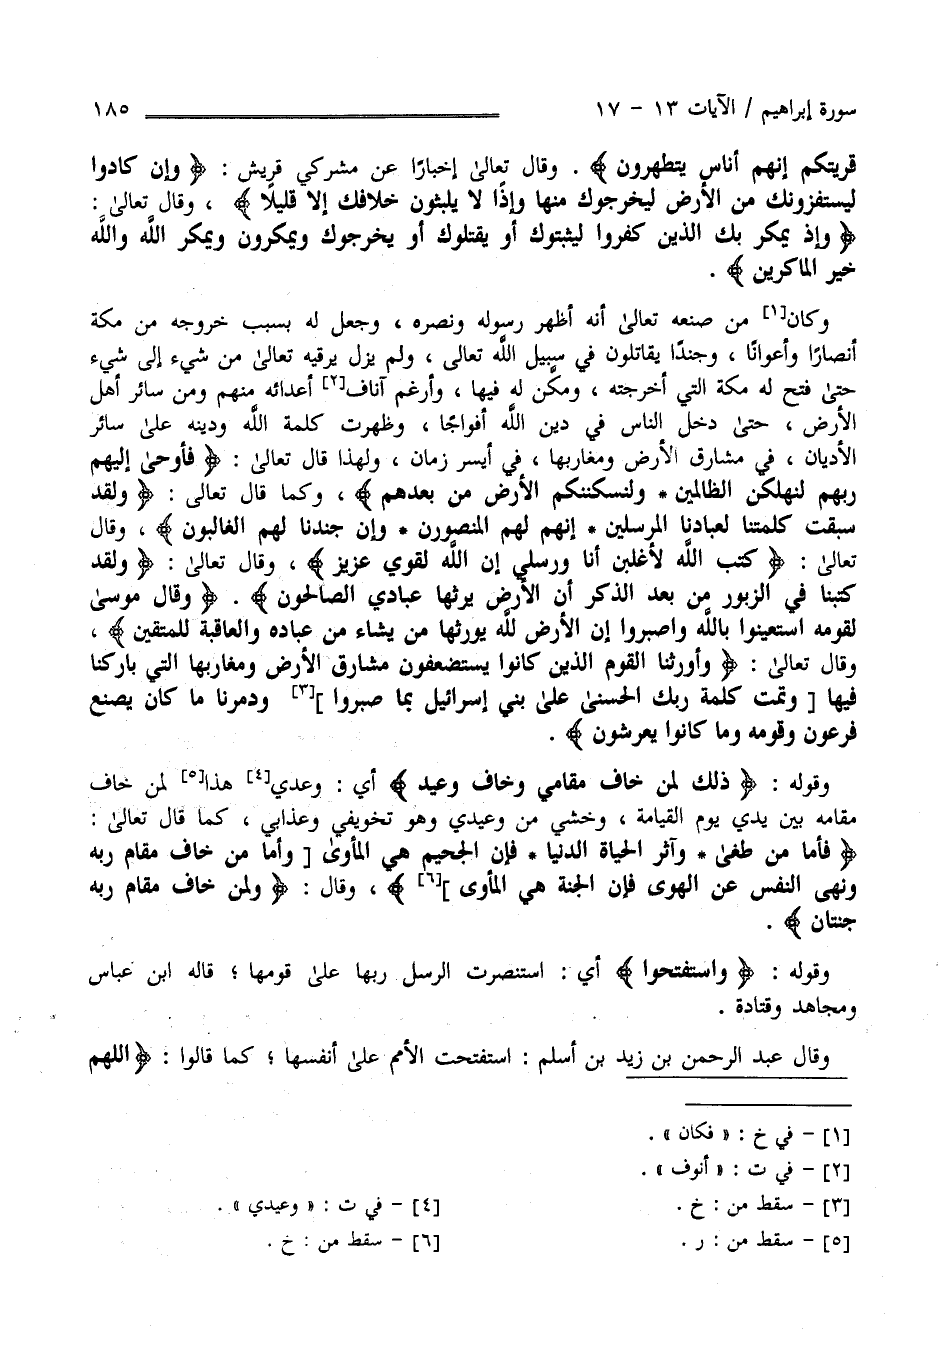 سورة إبراهيم / الآيات ١٣ - ١٧ ١٨٥
قريتكم إنهم أناس يتطهرون ﴾ . وقال تعالىٰ إخبارًا عن مشركي قريش : ﴿ وإن كادوا
ليستفزونك من الأرض ليخرجوك منها وإذًا لا يلبثون خلافك إلا قليلًا ﴾ ، وقال تعالىٰ :
﴿ وإذ يمكر بك الذين كفروا ليثبتوك أو يقتلوك أو يخرجوك ويمكرون ويمكر اللَّه واللَّه
خير الماكرين ﴾ .
وكان[١] من صنعه تعالىٰ أنه أظهر رسوله ونصره ، وجعل له بسبب خروجه من مكة
أنصارًا وأعوانًا ، وجندًا يقاتلون في سبيل اللَّه تعالى ، ولم يزل يرقيه تعالىٰ من شيء إلى شيء
حتىٰ فتح له مكة التي أخرجته ، ومكّن له فيها ، وأرغم آناف[٢] أعدائه منهم ومن سائر أهل
الأرض ، حتىٰ دخل الناس في دين اللَّه أفواجًا ، وظهرت كلمة اللَّه ودينه علىٰ سائر
الأديان ، في مشارق الأرض ومغاربها ، في أيسر زمان ، ولهذا قال تعالىٰ : ﴿ فأوحىٰ إليهم
ربهم لنهلكن الظالمين * ولنسكننكم الأرض من بعدهم ﴾ ، وكما قال تعالى : ﴿ ولقد
سبقت كلمتنا لعبادنا المرسلين * إنهم لهم المنصورن * وإن جندنا لهم الغالبون ﴾ ، وقال
تعالىٰ : ﴿ كتب اللَّه لأغلبن أنا ورسلي إن اللَّه لقوي عزيز ﴾ ، وقال تعالىٰ : ﴿ ولقد
كتبنا في الزبور من بعد الذكر أن الأرض يرثها عبادي الصالحون ﴾ . ﴿ وقال موسىٰ
لقومه استعينوا باللَّه واصبروا إن الأرض للَّه يورثها من يشاء من عباده والعاقبة للمتقين ﴾ ،
وقال تعالىٰ : ﴿ وأورثنا القوم الذين كانوا يستضعفون مشارق الأرض ومغاربها التي باركنا
فيها [ وتمت كلمة ربك الحسنىٰ علىٰ بني إسرائيل بما صبروا ][٣] ودمرنا ما كان يصنع
فرعون وقومه وما كانوا يعرشون ﴾ .
وقوله : ﴿ ذلك لمن خاف مقامي وخاف وعيد ﴾ أي : وعدي[٤] هذا[٥] لمن خاف
مقامه بين يدي يوم القيامة ، وخشي من وعيدي وهو تخويفي وعذابي ، كما قال تعالىٰ :
﴿ فأما من طغىٰ * وآثر الحياة الدنيا * فإن الجحيم هي المأوىٰ [ وأما من خاف مقام ربه
ونهى النفس عن الهوى فإن الجنة هي المأوى ][٦] ﴾ ، وقال : ﴿ ولمن خاف مقام ربه
جنتان ﴾ .
وقوله : ﴿ واستفتحوا ﴾ أي : استنصرت الرسل ربها علىٰ قومها ؛ قاله ابن عباس
ومجاهد وقتادة .
وقال عبد الرحمن بن زيد بن أسلم : استفتحت الأمم علىٰ أنفسها ؛ كما قالوا : ﴿ اللهم
[١] - في خ : « فكان » .
[٢] - في ت : « أنوف » .
[٣] - سقط من : خ . [٤] - في ت : « وعيدي » .
[٥] - سقط من : ر . [٦] - سقط من : خ .